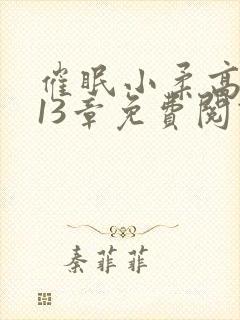 催眠小柔高
13章免費閱
秦菲菲